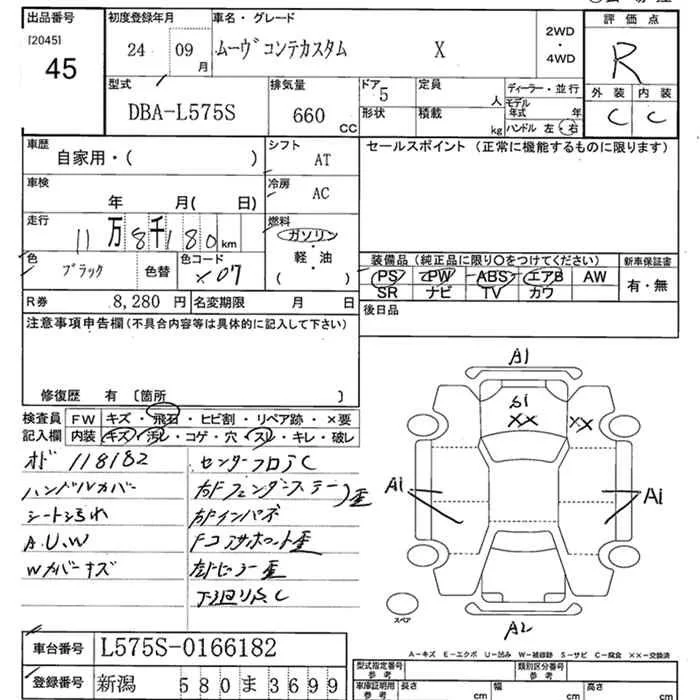 出品番号 初度登録年月 車名・グレード 評価点
[2045]
45 24 09月 ムーヴコンテカスタム X 2WD・4WD R
型式 排気量 ドア 定員 ディーラー・並行 外装 内装
DBA-L575S 660CC 5 人 モデル年式 年 C C
形状 積載 kg ハンドル 左・右
車歴 シフト セールスポイント (正常に機能するものに限ります)
自家用・( ) AT
車検 冷房
年 月( 日) AC
走行 燃料
11万8千180km ガソリン・軽油( )
色 ブラック 色替 色コード X07
装備品(純正品に限り○をつけてください) 新車保証書
PS PW ABS エアB AW 有・無
SR ナビ TV カワ
R券 8,280円 名変期限 月 日 後日品
注意事項申告欄(不具合内容等は具体的に記入して下さい)
修復歴 有 〔箇所 〕
検査員 FW キズ・飛石・ヒビ割・リペア跡・×要
記入欄 内装 キズ・汚レ・コゲ・穴・スレ・キレ・破レ
オド 118182 センターフロアC
ハンドルカバー 右Fフェンダーステー歪
シート汚れ 右Fインパネ
A.U.W Fコアサポート歪
Wカバーキズ 左Fピラー歪
下廻りC
A1
S1
XX XX
A1 A1
A2
スペア
A-キズ E-エクボ U-凹み W-補修跡 S-サビ C-腐食 XX-交換済
車台番号 L575S-0166182
登録番号 新潟 580ま3699
型式指定番号 参考 類別区分番号 参考
車庫証明用 参考 長さ cm 幅 cm 高さ cm